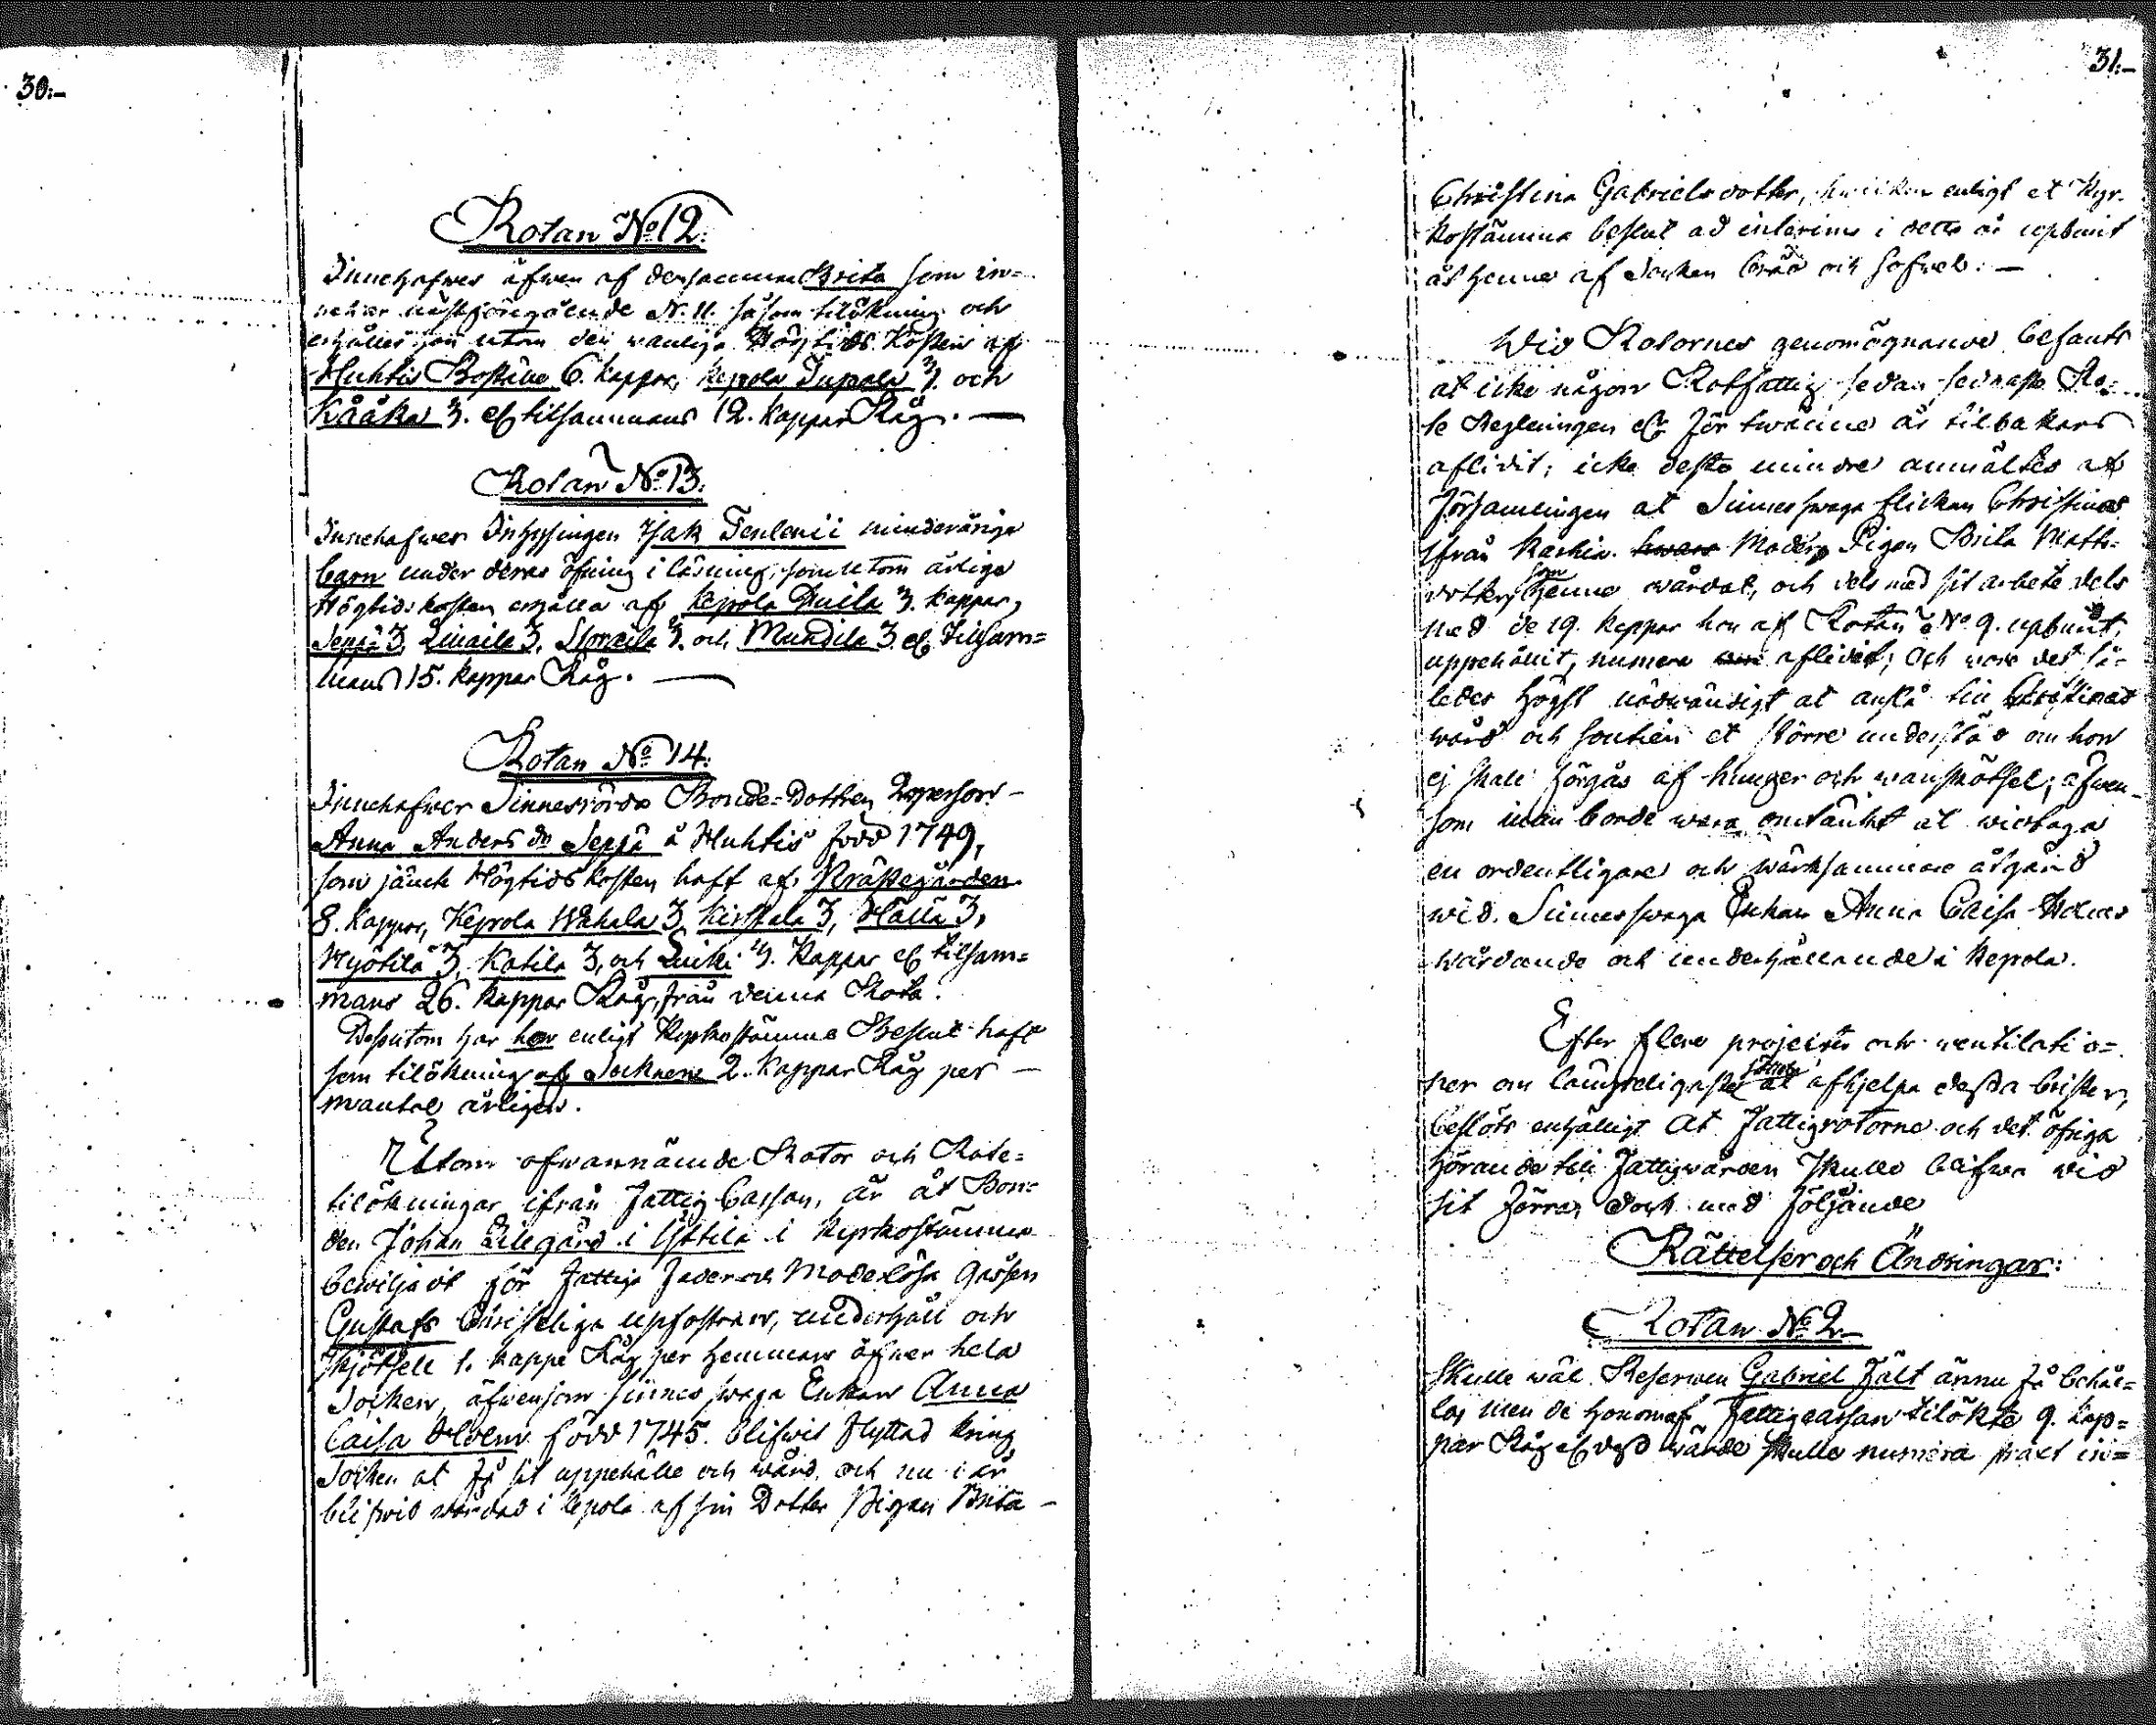 30:–
Rotan No 12:
Innehafwes äfwen af densamma Brita som in=
nehar nästföregående N. 11. såsom tilökning och
erhåller hon utom den wanliga Högtids Kosten af
Huhtis Boställe 6. kappar, Kepola Tupala 3. och
Kååka 3. eller tilsammans 12. kappar Råg. —
Rotan No 13:
Innehafwes Inhysingen Isak Tenlenii minderåriga
barn under deras öfning i läsning, som utom årliga
Högtids kosten erhålla af Kepola Quila 3. kappar,
Seppä 3, 3, 3. och Mundila 3. eller Tilsam=
mans 15. kappar Råg. —
Rotan No 14:
Innehafwer Sinnesrörda Bonde=Dottren
Anna Anders dr Seppä å Huhtis född 1749,
som jämte Högtids kosten haft af Prästegården
8. kappar, Kepola Wahala 3, Kirstala 3, Hälla 3,
Hyötilä 3, Katila 3, och 3. Kappar eller tilsam=
mans 26. kappar Råg, från denna Rota.
Dessutom har hon enligt Kyrkostämma Beslut haft
som tilökning af Socknene 2. kappar Råg per —
mantal årligen.
Utom ofwannämde Rotor och Rote=
tilökningar ifrån Fattig Cassan, är åt Bon=
den Johan Lillegård i Yttilä i Kyrkostämma
bewiljadt för fattiga Fader och Moderlösa gossen
Gustafs Christeliga upfostran, underhåll och
skjötsell 1. kappe Råg per hemman öfwer hela
Socken, äfwensom sinnes swaga Enkan Anna
Caisa Holm född 1745. blifwit flyttad kring
Socken at få sit uppehälle och wård, och nu i år
blifwit wårdad i Kepola af sin Dotter Pigan Brita —
31:–
Christina Gabriels dotter, hwilken enligt et Kyr=
kostämma beslut ad interim i detta år upburit
åt henne af Socken bröd och sofwel. —
Wid Rotornes genomögnande befants
at icke någon Rotfattig sedan sednaste Ro=
te Regleringen eller för twänne år tilbakars
aflidit; icke desto mindre anmältes af
Församlingen at Sinnesswaga flickan Christinas
ifrån Karhia hwars Moder Pigan Brita Matts=
dotter, som henne wårdat, och dels med sit arbete dels
med de 19. kappar hon af Rotan No 9. upburit,
uppehållit, numera aflidit; och wore det så=
ledes högst nödwändigt at anslå till Christinas
wård och soutien et större understöd om hon
ej skall förgås af hunger och wanskötsel; äfwen=
som man borde wara omtänkt at widtaga
en ordentligare och wärksammare åtgärd
wid Sinnesswaga Enkan Anna Caisa Holms
wårdande och underhållande i Kepola.
Efter flere projecter och ventilatio=
ner om lämpeligaste sättet at afhjelpa dessa brister,
beslöts enhälligt At Fattigrotorne och det öfriga
hörande till Fattigwården skulle blifwa wid
sit förra, dock med följande
Rättelser och Ändringar:
Rotan No 2.
Skulle wäl Reserwen Gabriel Fält ännu få behål=
la, men de honom af Fattigcassan tilökte 9. kap=
par Råg eller dess wärde skulle numera straxt in=